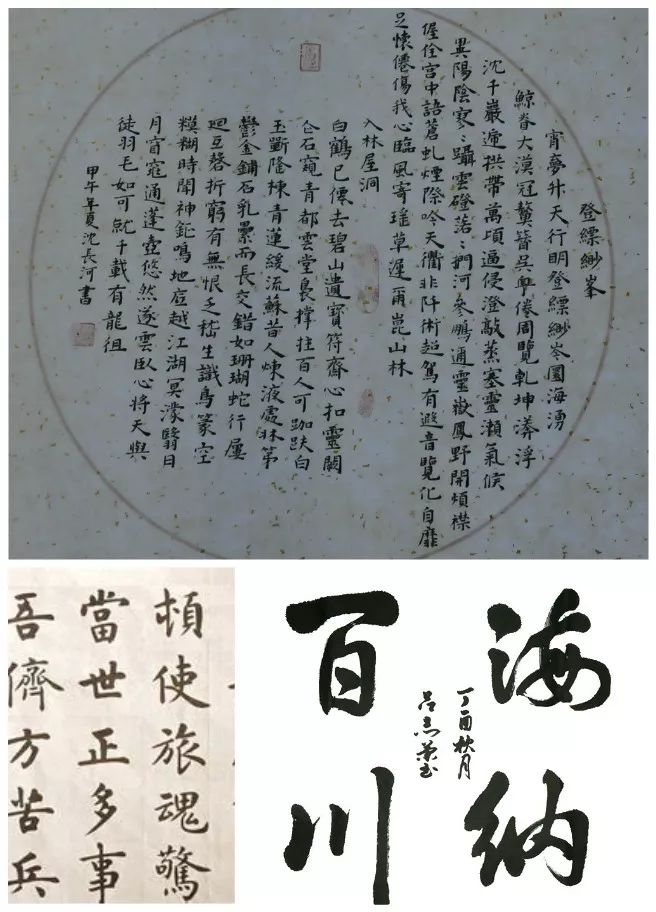 登缥緲峯
宵夢升天行明登缥緲岑圜海湧
鯨脊大漠冠鰲簪吳粵倦周覽乾坤漭浮
沈千巖遞拱帶萬頃遏侵澄敲蒸塞靈瀨氣候
異陽陰寒ミ躡雲磴落ミ捫河參鵬通靈嶽鳳野開煩襟
偓佺宮中語蒼虬煙際吟天衢非阡術超駕有遐音覽化自靡
足懷僊傷我心臨風寄瑤草遲爾崑山林
入林屋洞
白鶴已僊去碧山遺寶符齋心扣靈闕
石窺青都雲堂裊撑拄百人可跏趺白
玉斲隆棟青蓮緩流蘇昔人煉液處牀第
鬱金鋪石乳纍而長交錯如珊瑚蛇行屢
迴互磬折窮有無恨乏嵇生識鳥篆空
糢糊時聞神鉦鳴地底越江湖冥濛翳日
月窅通蓬壺悠然遂雲臥心將天與
徒羽毛如可就千載有龍徂
甲午年夏沈長河書
頓使旅魂驚
當世正多事
吾儕方苦兵
海納
百川
丁酉秋月
呂志